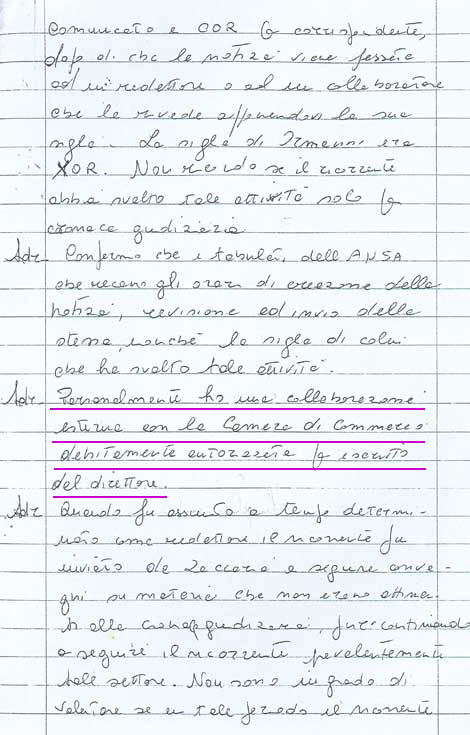 Comunicato e COR x corrispondente,
dopo di che la notizia viene passata
ad un redattore o ad un collaboratore
che la rivede apponendovi la sua
sigla. La sigla di Irmanni era
XOR. Non ricordo se il ricorrente
abbia svolto tale attività solo x
cronaca giudiziaria
Adr Confermo che i tabulati dell'ANSA
che recano gli orari di creazione della
notizia, revisione ed invio della
stessa, nonché la sigla di colui
che ha svolto tale attività.
Adr. Personalmente ho una collaborazione
esterna con la Camera di Commercio
debitamente autorizzata x iscritto
dal direttore.
Adr Quando fu assunto a tempo determi-
nato come redattore il ricorrente fu
inviato da Zaccaria a seguire conve-
gni su materie che non erano attinen-
ti alla cronaca giudiziaria, pur continuando
a seguire il ricorrente prevalentemente
tale settore. Non sono in grado di
valutare se in tale periodo il ricorrente